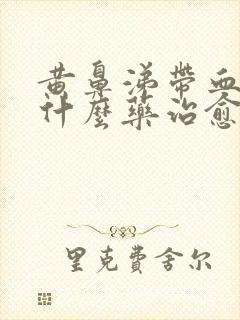 黄鼻涕帶血
什麼藥治愈
里克費舍尔